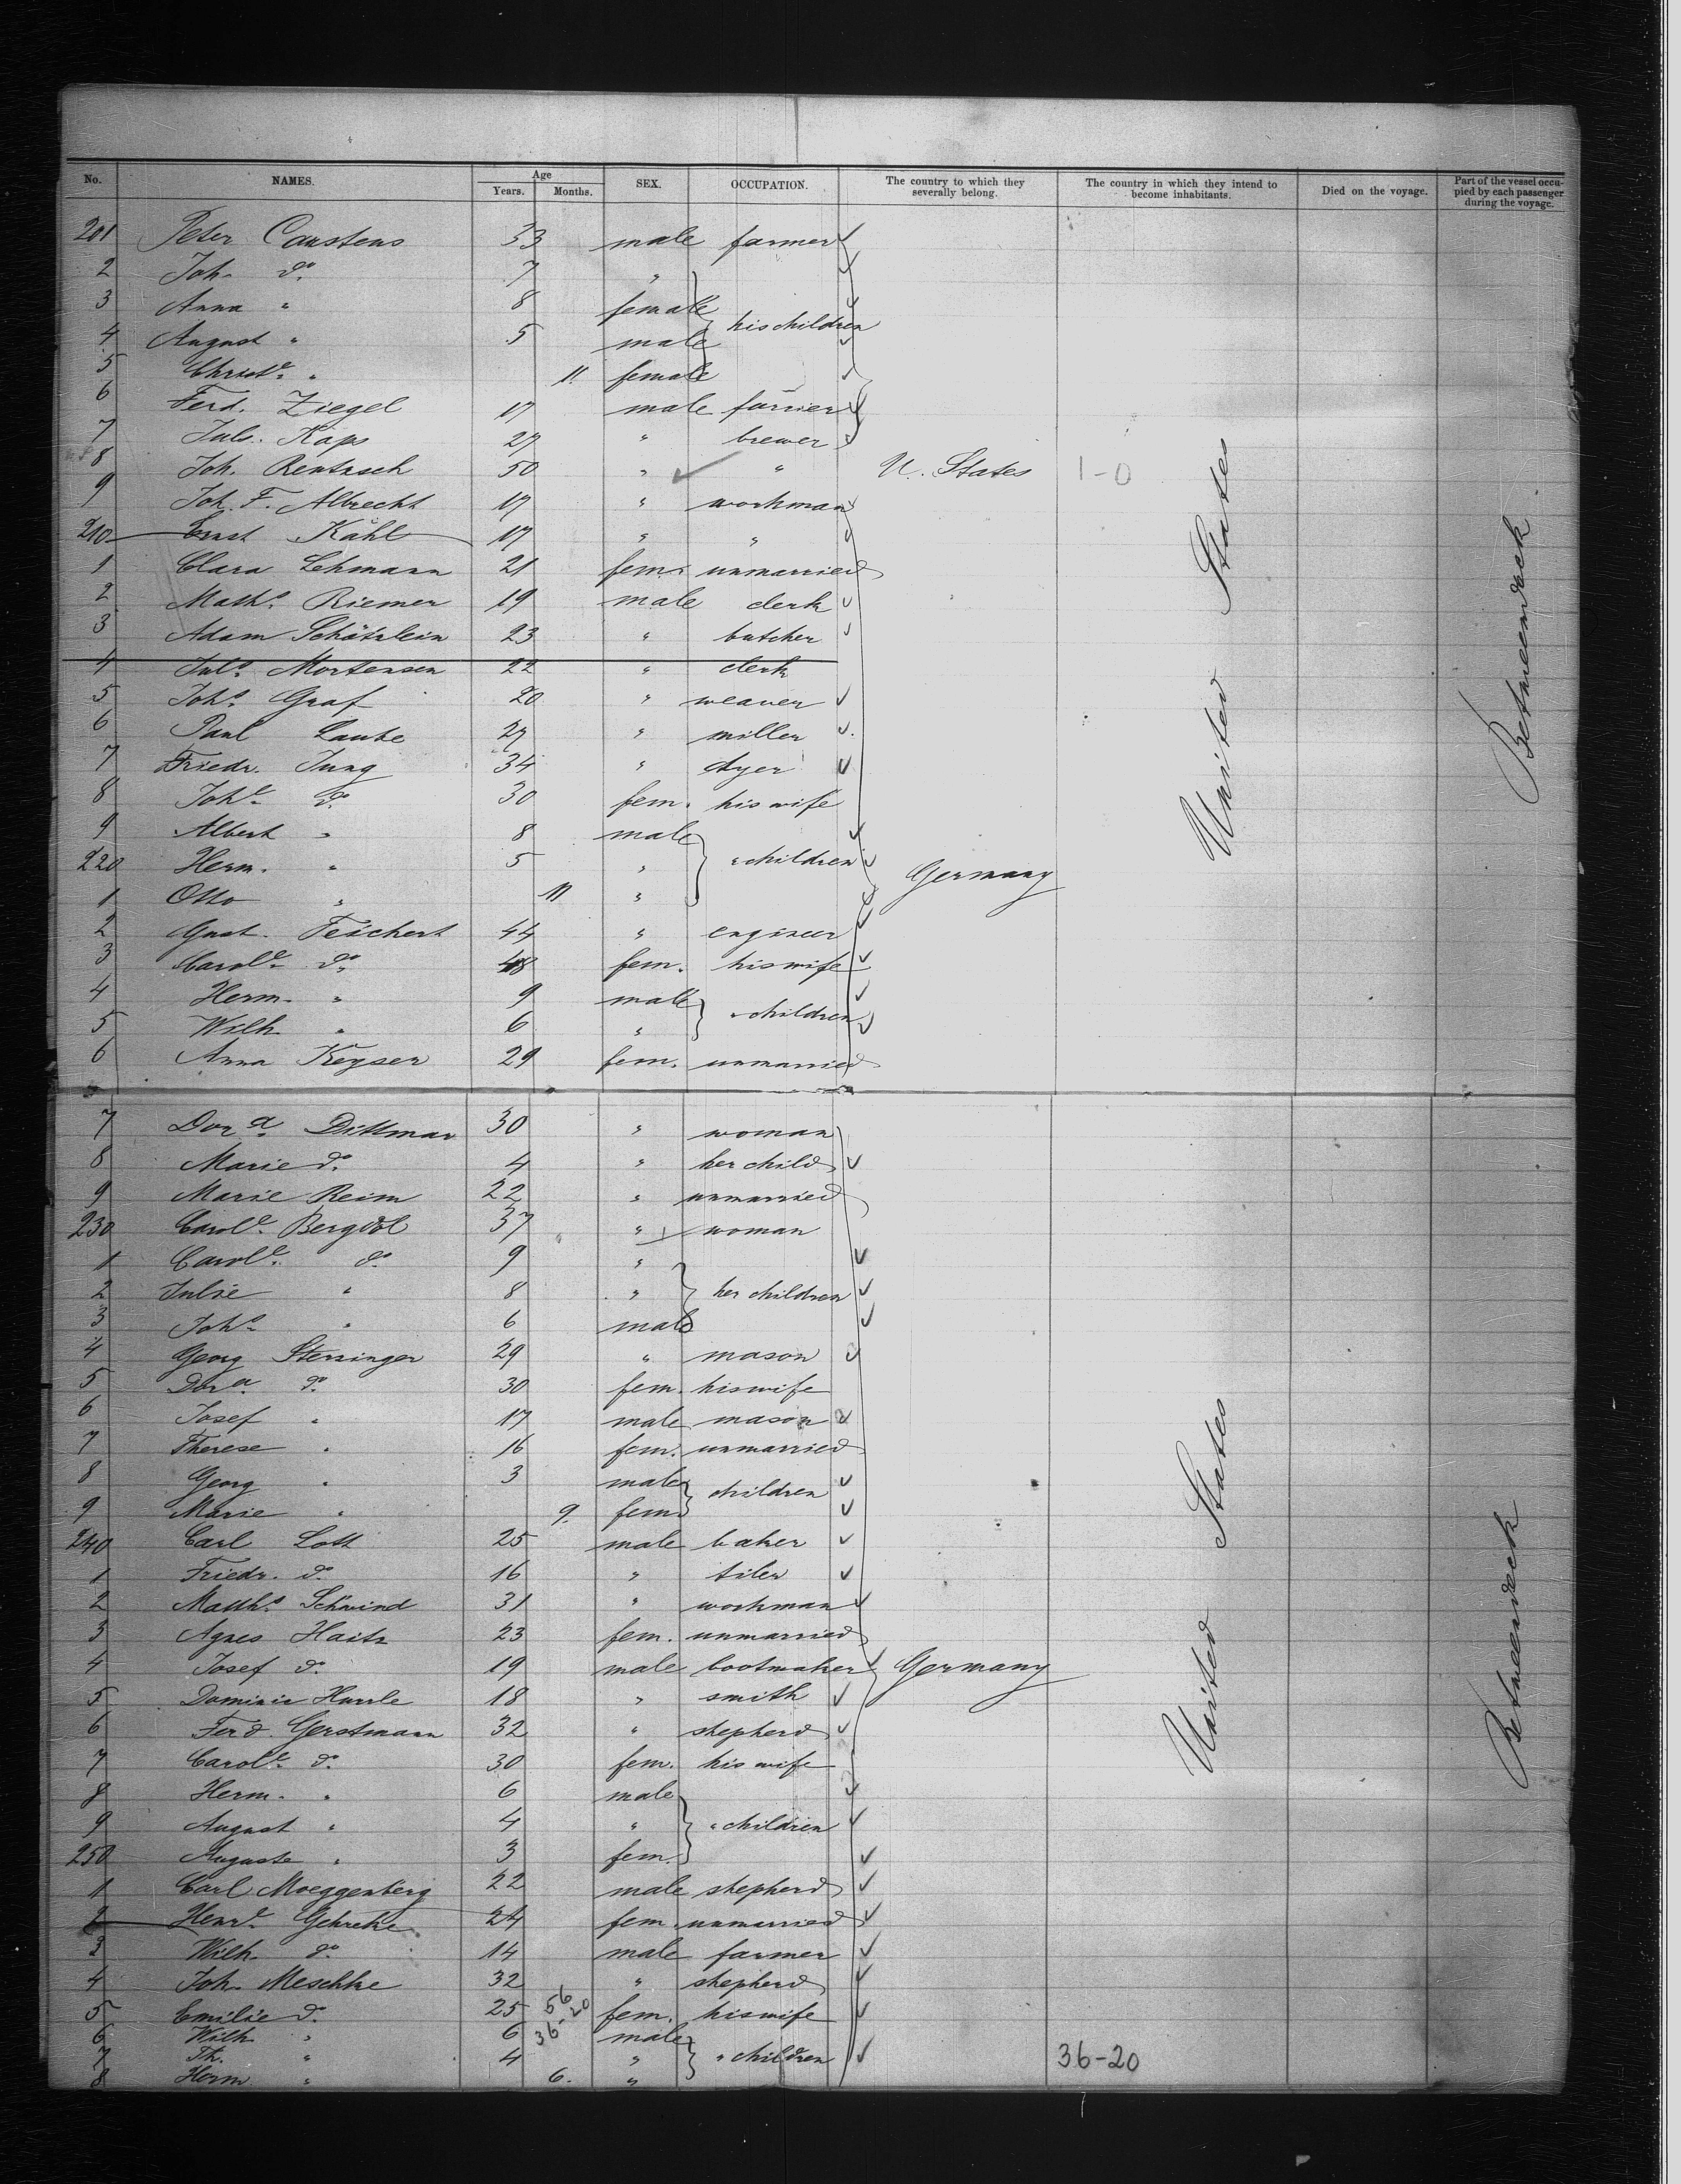 No. NAMES. Age Years. Months. SEX. OCCUPATION. The country to which they severally belong. The country in which they intend to become inhabitants. Died on the voyage. Part of the vessel occupied by each passenger during the voyage.
201 Peter Carstens 33 male farmer
2 Joh. do. 7 "
3 Anna " 8 female his children
4 August " 5 male
5 Christe. " 11. female
6 Ferd. Ziegel 17 male furrier
7 Juls. Kaps 27 " brewer
8 Joh. Rentzsch 50 " " U. States 1-0
9 Joh. F. Albrecht 17 " workman
210 Ernst Kähl 17 " "
1 Clara Lehmann 21 fem. unmarried
2 Maths. Riemer 19 male clerk
3 Adam Schätzlein 23 " butcher
4 Juls. Mortensen 22 " clerk
5 Johs. Graf 20 " weaver
6 Paul Laube 27 " miller
7 Friedr. Jung 34 " dyer
8 Johe. do. 30 fem. his wife
9 Albert " 8 male
220 Herm. " 5 " " children Germany
1 Otto " 11 "
2 Gust. Teichert 44 " engineer
3 Carole. do. 48 fem. his wife
4 Herm. " 9 male " children
5 Wilh. " 6 "
6 Anna Keyser 29 fem. unmarried
United States
Betweendeck
7 Dora. Dittmar 30 " woman
8 Marie do. 4 " her child
9 Marie Reim 22 " unmarried
230 Carole. Bergdol 37 " woman
1 Carole. do. 9 "
2 Julie " 8 " her children
3 Johs. " 6 male
4 Georg Stersinger 29 " mason
5 Dora. do. 30 fem. his wife
6 Josef " 17 male mason
7 Therese " 16 fem. unmarried
8 Georg " 3 male children
9 Marie " 9. fem.
240 Carl Lott 25 male baker
1 Friedr. do. 16 " tiler
2 Matths. Schwind 31 " workman
3 Agnes Haitz 23 fem. unmarried
4 Josef do. 19 male bootmaker Germany
5 Dominic Hurrle 18 " smith
6 Ferd. Gerstmann 32 " shepherd
7 Carole. do. 30 fem. his wife
8 Herm. " 6 male
9 August " 4 " " children
250 Auguste " 3 fem.
1 Carl Moeggenberg 22 male shepherd
2 Henre. Gehreke 24 fem. unmarried
3 Wilh. do. 14 male farmer
4 Joh. Meschke 32 " shepherd
5 Emilie do. 25 56 fem. his wife
6 Wilh. " 6 36-20 male
7 Th. " 4 " " children 36-20
8 Herm. " 6. "
United States
Betweendeck